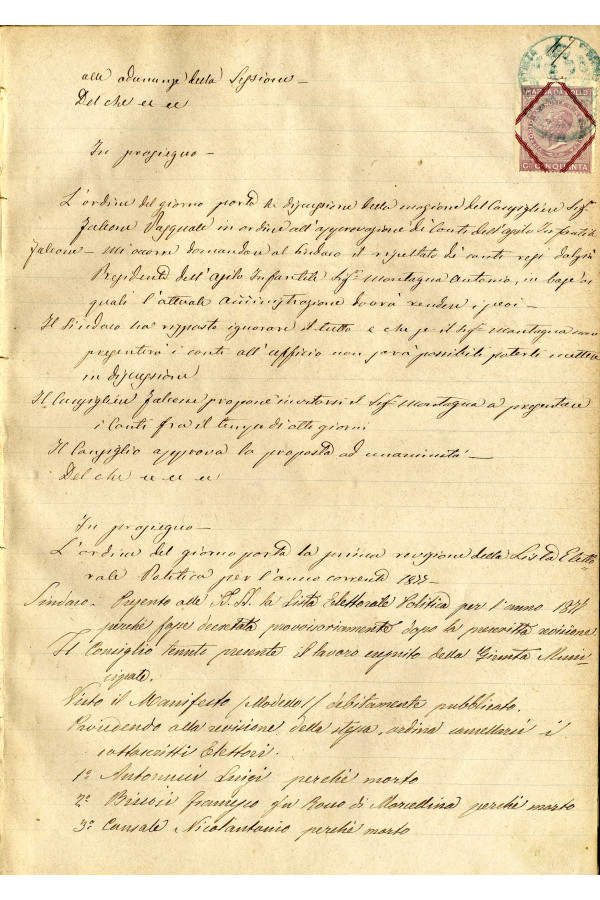 alle adunanze della Sessione
Del che
MARCA DA BOLLO
CMI CINQUANTA
In prosieguo
L'ordine del giorno porta la discussione della mozione del Consigliere Sigr
Falcone Pasquale in ordine all'approvazione di Conti dell'asilo Infantile
Falcone - Mi occorre domandare al Sindaco il risultato di conti resi dal già
Presidente dell'asilo Infantile Sigr Montagna Antonio, in base ai
quali l'attuale amministrazione dovrà rendere i suoi
Il Sindaco ha risposto ignorare il tutto e che se il Sigr Montagna non
presenterà i conti all'ufficio non sarà possibile poterli mettere
in discussione
Il Consigliere Falcone propone invitarsi il Sigr Montagna a presentare
i Conti fra il tempo di otto giorni
Il Consiglio approva la proposta ad unanimità
Del che
In prosieguo
L'ordine del giorno porta la prima revisione della Lista Eletto
rale Politica per l'anno corrente
Sindaco. Presento alle la Lista Elettorale Politica per l'anno
perchè fosse decretata provvisoriamente dopo la prescritta revisione
Il Consiglio tenuto presente il lavoro eseguito della Giunta Muni-
cipale.
Visto il Manifesto debitamente pubblicato.
Provvedendo alla revisione della stessa, ordina cancellarsi i
sottoscritti Elettori.
1º Antonucci Luigi perchè morto
2º Francesco fu Rocco di Marcellina perchè morto
3º Nicolantonio perchè morto